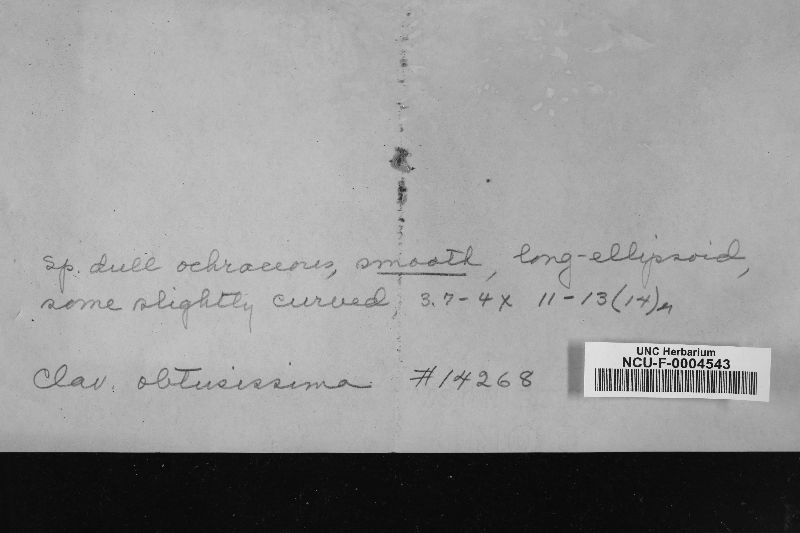 sp. dull ochraceous, smooth, long-ellipsoid,
some slightly curved, 3.7-4 x 11-13(14)µ
Clav. obtusissima #14268
UNC Herbarium
NCU-F-0004543